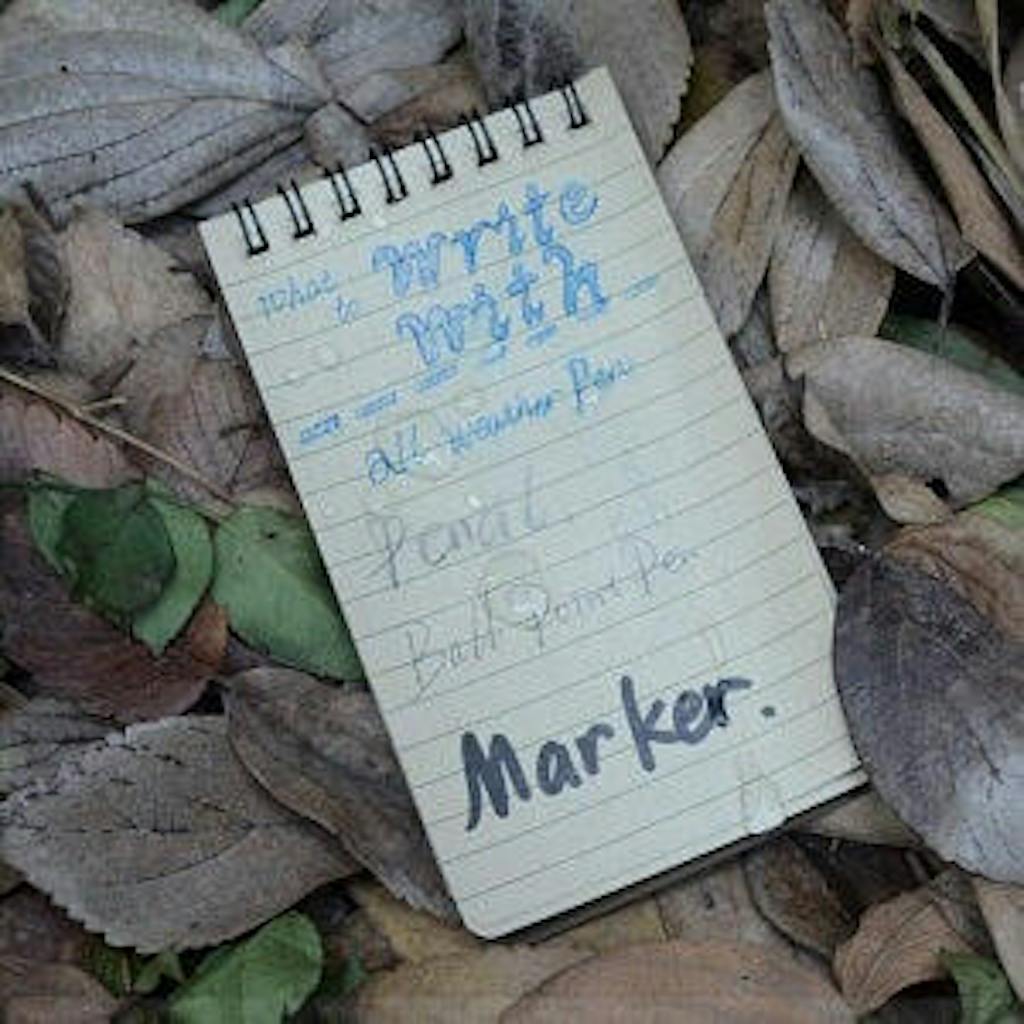 What to Write
With
All Weather Pen
Pencil
Ball Point Pen
Marker.